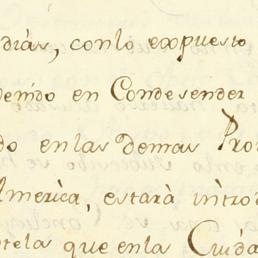 dias, conlo expuesto
denido en Condesender
do enlas demas Pro
America, estarà introd
tela que enla Ciuda